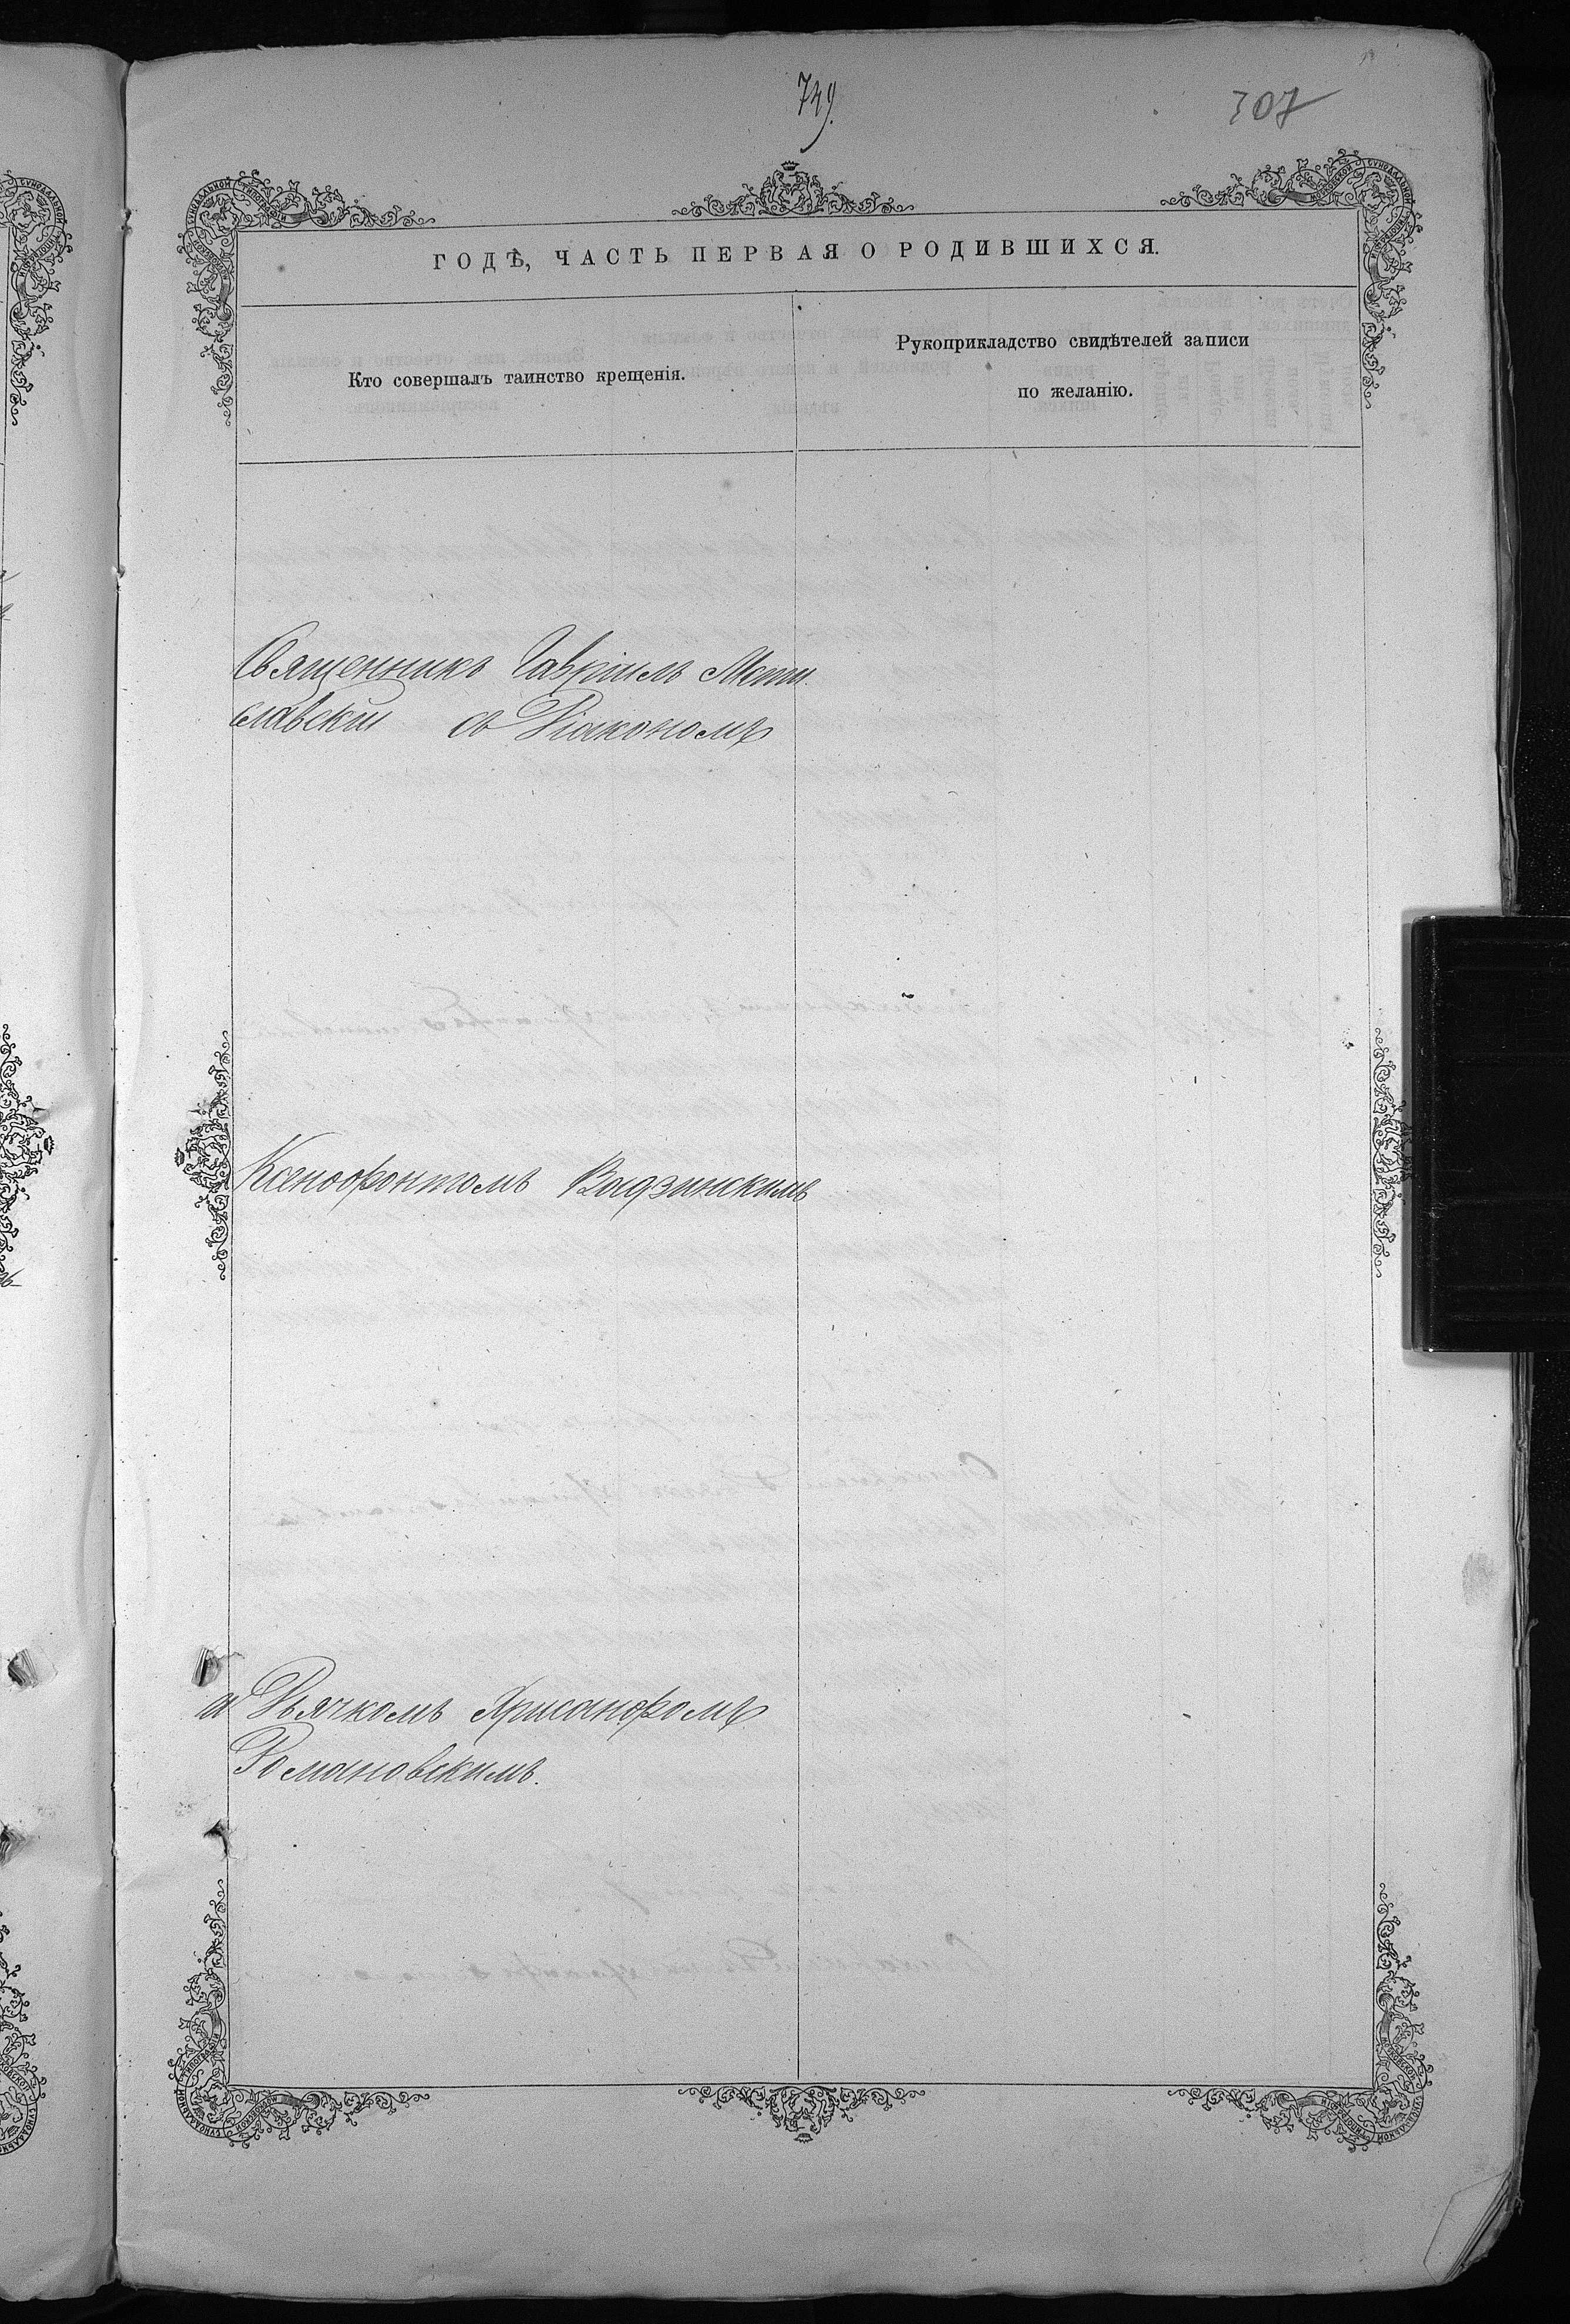 749.
307
ГОДѢ, ЧАСТЬ ПЕРВАЯ О РОДИВШИХСЯ.
Кто совершалъ таинство крещенія.
Рукоприкладство свидѣтелей записи
по желанію.
Священникъ Гавріилъ Мсти
славскій съ Діакономъ
Ксенофонтомъ Вадзинскимъ
и Дьячкомъ Хрисанфомъ
Романовскимъ.